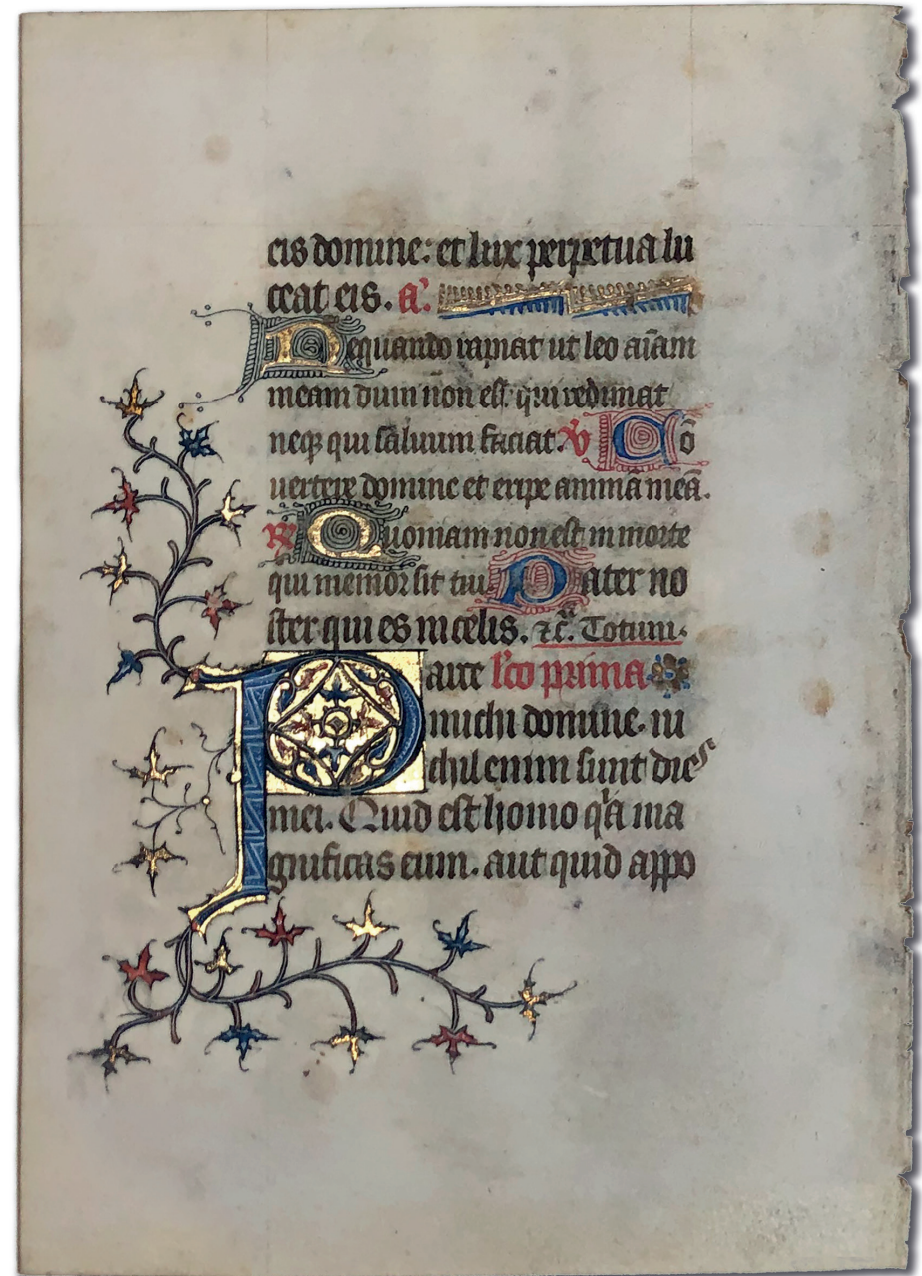 eis domine: et lux perpetua lu
ceat eis. a͛.
Nequando rapiat ut leo aīam
meam dum nōn est qui redimat
neqꝫ qui saluum faciat. ℣ Cō
uertere domine et eripe animā meā.
℟ Quoniam non est in morte
qui memor sit tui. Pater no
ster qui es in celis. ⁊c̃. Totum.
Parce lc̄o prima
michi domine. ni
chil enim sunt dies
mei. Quid est homo qͥa ma
gnificas eum. aut quid appo